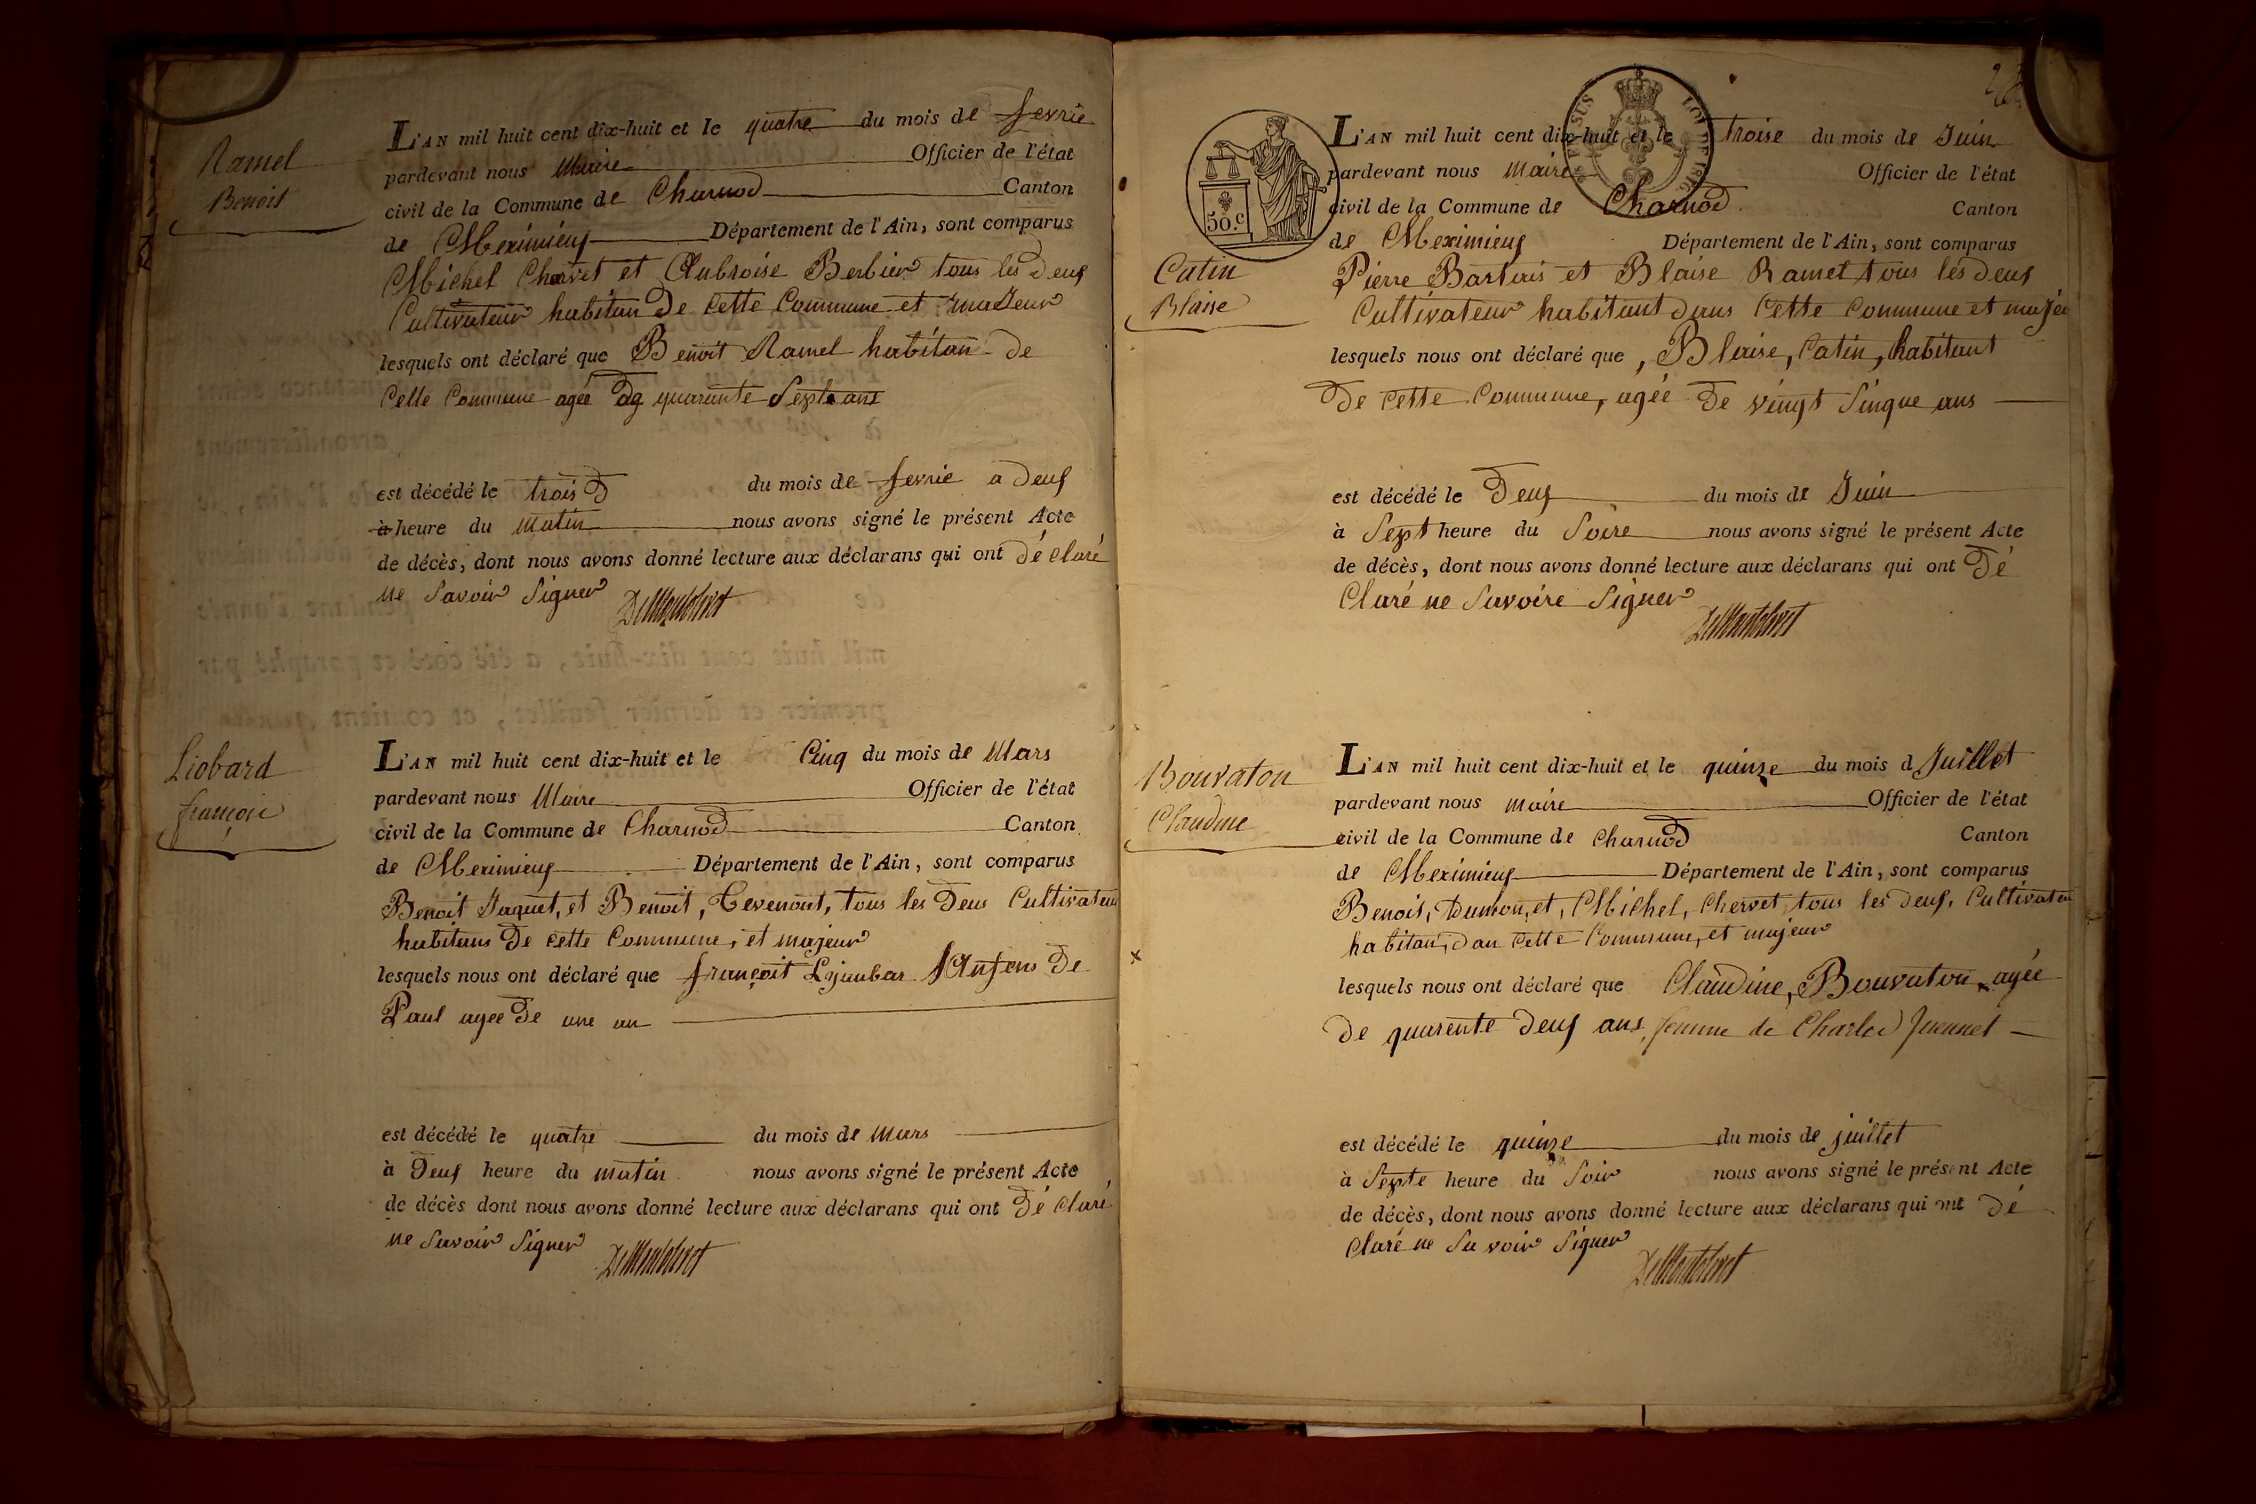 Ramel
Benoit
L'AN mil huit cent dix-huit et le quatre du mois de fevrie
pardevant nous Maire Officier de l'état
civil de la Commune de Charnod Canton
de Meximieuf Département de l'Ain, sont comparus
Michel Chervet et Anbroise Berbier tous les deuf
Cultivateur habitan De cette Commune et majeur
lesquels ont déclaré que Benoit Ramel habitan de
Cette Commune agéé de quarante Septe ans
est décédé le trois du mois de fevrie a Deuf
à heure du matin nous avons signé le présent Acte
de décès, dont nous avons donné lecture aux déclarans qui ont Dé claré
ne Savoir Signer
Liobard
françois
L'AN mil huit cent dix-huit et le Cinq du mois de Mars
pardevant nous Maire Officier de l'état
civil de la Commune de Charnod Canton
de Meximieuf Département de l'Ain, sont comparus
Benoit Jaquet, et Benoit, Tevenont, tous les Deus Cultivateur
habitans De cette Commune, et majeur
lesquels nous ont déclaré que françoit Lyaubar Anfens De
Paul agee De une an
est décédé le quatre du mois de Mars
à Deuf heure du matin nous avons signé le présent Acte
de décès dont nous avons donné lecture aux déclarans qui ont Dé claré
ne Savoir Signer
50.c
Catin
Blaise
L'AN mil huit cent dix-huit et le troise du mois de Juin
pardevant nous maire Officier de l'état
civil de la Commune de Charnod Canton
de Meximieuf Département de l'Ain, sont comparus
Pierre Bartais et Blaise Ramel tous les deuf
Cultivateur habitant dans Cette Commune et majeu
lesquels nous ont déclaré que, Blaise, Catin, habitant
De cette Commune, agéé De vingt Sinque ans
est décédé le Deuf du mois de Juin
à Sept heure du Soire nous avons signé le présent Acte
de décès, dont nous avons donné lecture aux déclarans qui ont Dé
Claré ne Savoire Signer
Bouvaton
Claudine
L'AN mil huit cent dix-huit et le quinze du mois d Juillet
pardevant nous maire Officier de l'état
civil de la Commune de Charnod Canton
de Meximieuf Département de l'Ain, sont comparus
Benoit, Dumon, et, Michel, Chervet, tous les deuf, Cultivateu
habitan, dan Cette Commune, et majeur
lesquels nous ont déclaré que Claudine, Bouvaton, agée
De quarente Deuf ans, femme de Charles Juennet
est décédé le quinze du mois de juillet
à Septe heure du Soir nous avons signé le présent Acte
de décès, dont nous avons donné lecture aux déclarans qui ont Dé
Claré ne Sa voir Signer